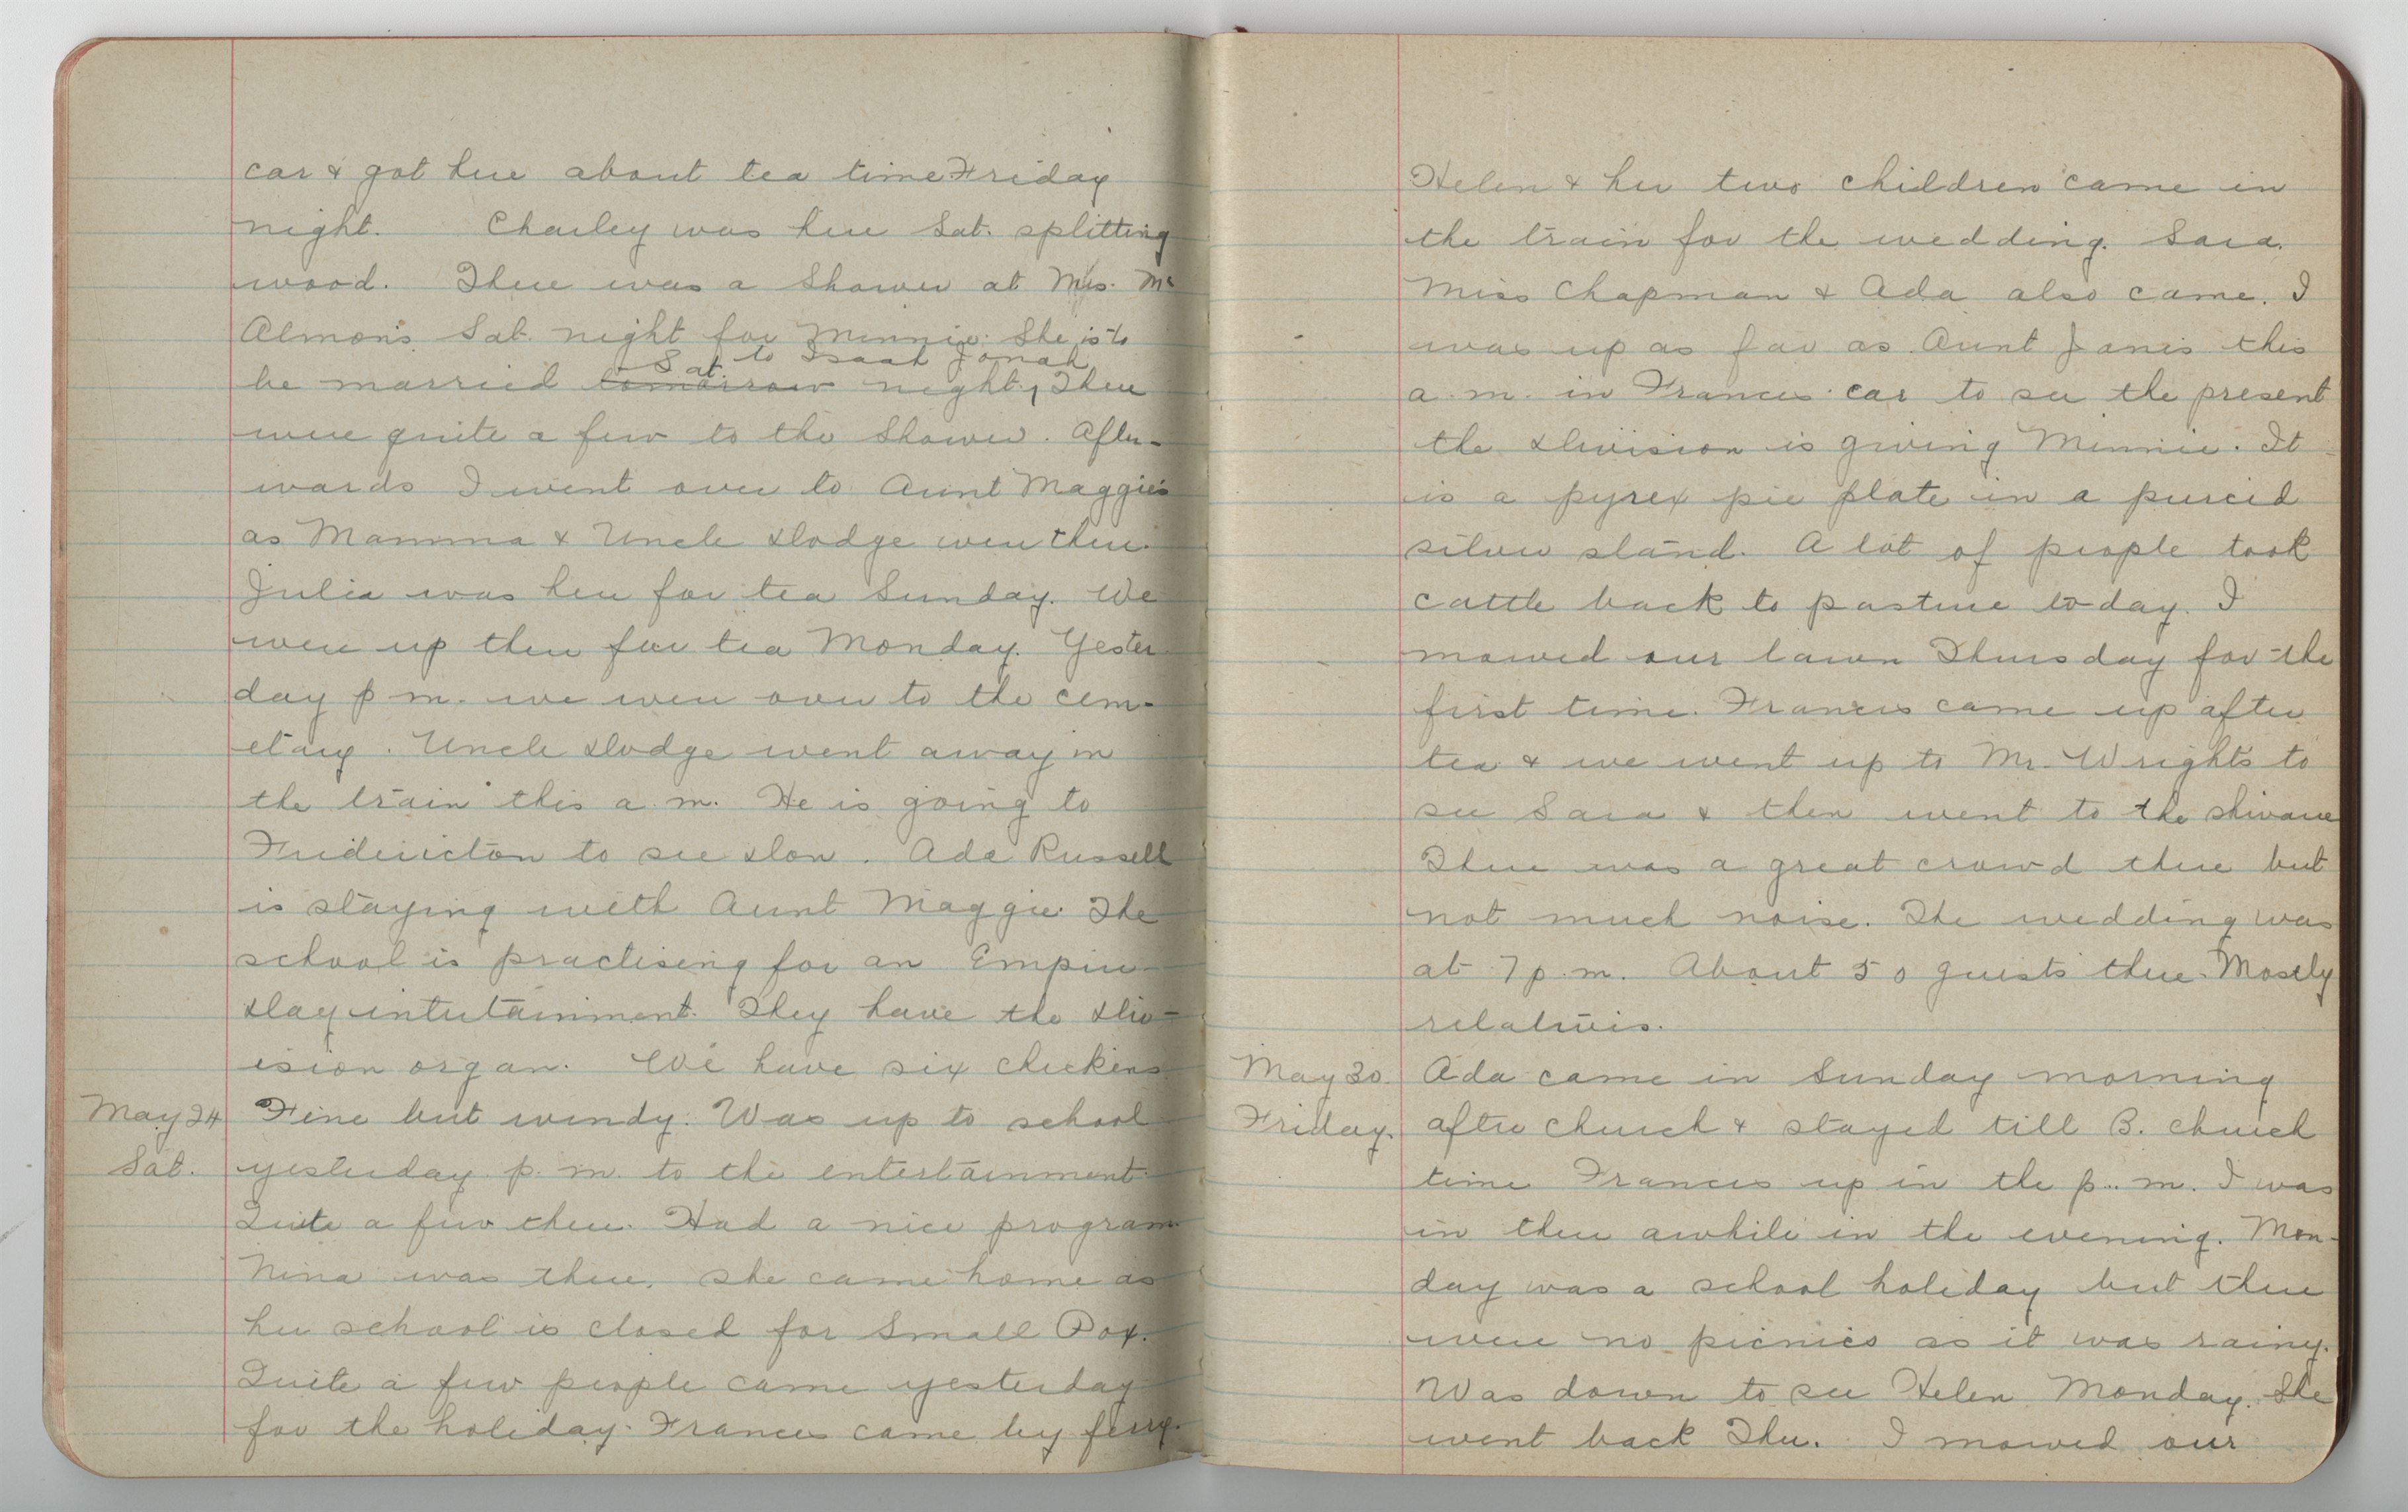 car & got here about tea time Friday
night. Charley was here Sat. splitting
wood. There was a Shower at Mrs. Mc
Almon's Sat. night for Minnie. She is to
Sat. to Isaah Jonah
be married tomorrow night, There
were quite a few to the Shower. After-
wards I went over to Aunt Maggie's
as Mamma & Uncle Dodge were there.
Julia was here for tea Sunday. We
were up there for tea Monday. Yester
day p m. we were over to the cem-
etary. Uncle Dodge went away in
the train this a. m. He is going to
Fredericton to see Don. Ada Russell
is staying with Aunt Maggie. The
school is practising for an Empire
Day entertainment. They have the Div-
ision organ. We have six chickens
May 24 Fine but windy. Was up to school
Sat. yesterday p. m. to the entertainment.
Quite a few there. Had a nice program.
Nina was there. She came home as
her school is closed for Small Pox.
Quite a few people came yesterday
for the holiday. Frances came by ferry.
Helen & her two children came in
the train for the wedding. Sara.
Miss Chapman & Ada also came. I
was up as far as Aunt Janes this
a. m. in Frances car to see the present
the Division is giving Minnie. It
is a pyrex pie plate in a pierced
silver stand. A lot of people took
cattle back to pasture to-day. I
mowed our lawn Thursday for the
first time. Frances came up after
tea & we went up to Mr. Wright's to
see Sara & then went to the shivaree
There was a great crowd there but
not much noise. The wedding was
at 7 p. m. About 50 guests there. Mostly
relatives.
May 30. Ada came in Sunday morning
Friday. after church & stayed till B. church
time Frances up in the p. m. I was
in there awhile in the evening. Mon-
day was a school holiday but there
were no picnics as it was rainy.
Was down to see Helen Monday. She
went back Thu. I mowed our